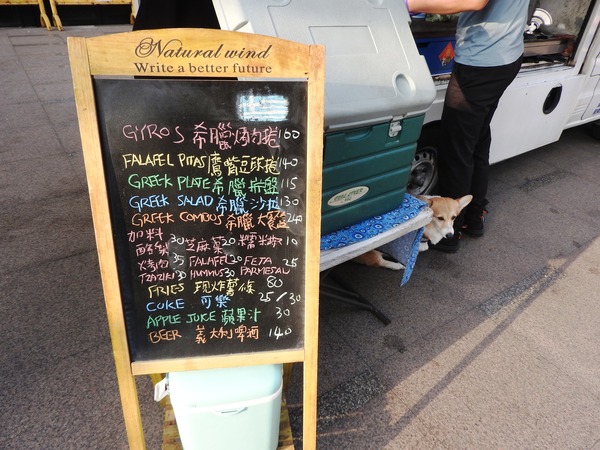 Natural wind
Write a better future
GYROS 希臘烤肉捲 160
FALAFEL PITAS 鷹嘴豆球捲 140
GREEK PLATE 希臘拼盤 115
GREEK SALAD 希臘沙拉 130
GREEK COMBOS 希臘大餐 240
加料
酪梨 30 芝麻葉 20 10
烤肉 35 FALAFEL 20 FETA 25
TZATZIKI 30 HUMMUS 30 PARMESAN
FRIES 現炸薯條 80
COKE 可樂 25/30
APPLE JUICE 蘋果汁 30
BEER 義大利啤酒 140